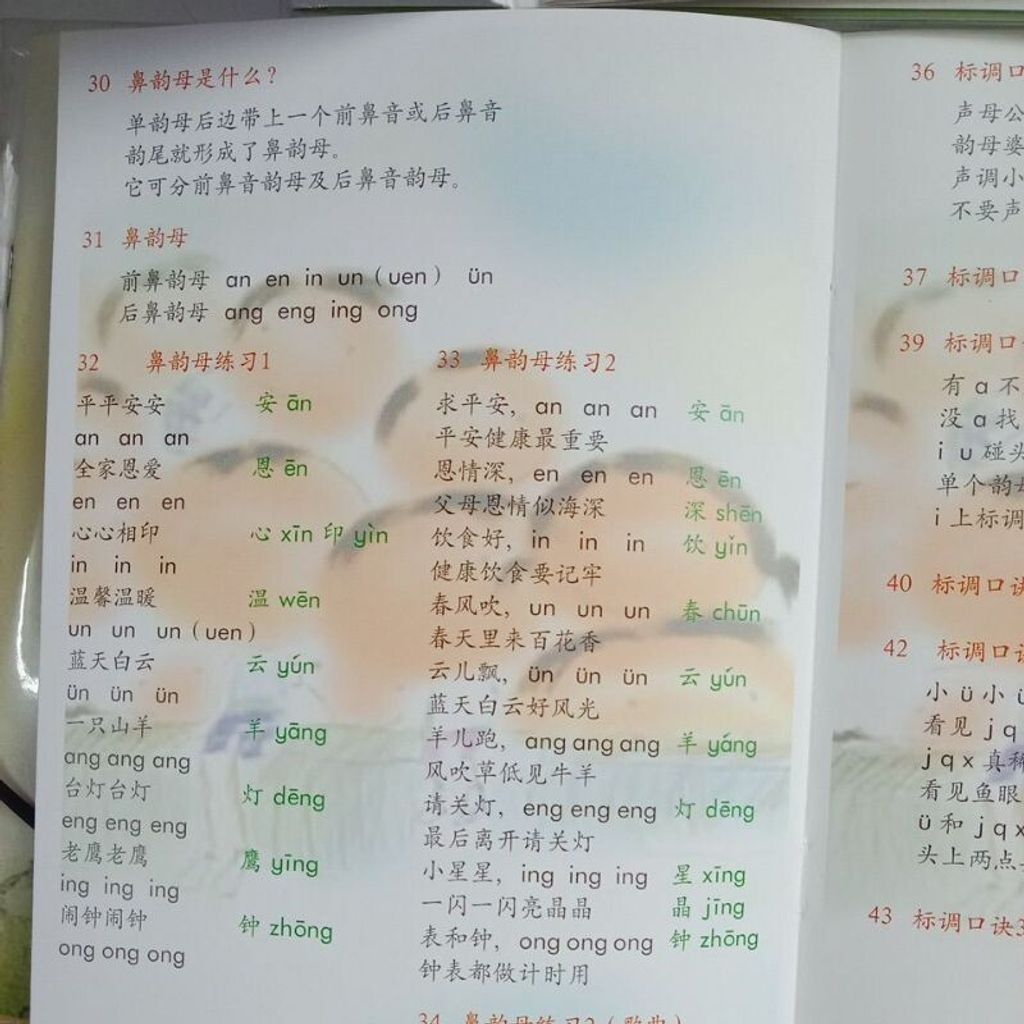 30 鼻韵母是什么？
单韵母后边带上一个前鼻音或后鼻音
韵尾就形成了鼻韵母。
它可分前鼻音韵母及后鼻音韵母。
31 鼻韵母
前鼻韵母 an en in un（uen） ün
后鼻韵母 ang eng ing ong
32 鼻韵母练习1
平平安安 安 ān
an an an
全家恩爱 恩 ēn
en en en
心心相印 心 xīn 印 yìn
in in in
温馨温暖 温 wēn
un un un（uen）
蓝天白云 云 yún
ün ün ün
一只山羊 羊 yāng
ang ang ang
台灯台灯 灯 dēng
eng eng eng
老鹰老鹰 鹰 yīng
ing ing ing
闹钟闹钟 钟 zhōng
ong ong ong
33 鼻韵母练习2
求平安，an an an 安 ān
平安健康最重要
恩情深，en en en 恩 ēn
父母恩情似海深 深 shēn
饮食好，in in in 饮 yǐn
健康饮食要记牢
春风吹，un un un 春 chūn
春天里来百花香
云儿飘，ün ün ün 云 yún
蓝天白云好风光
羊儿跑，ang ang ang 羊 yáng
风吹草低见牛羊
请关灯，eng eng eng 灯 dēng
最后离开请关灯
小星星，ing ing ing 星 xīng
一闪一闪亮晶晶 晶 jīng
表和钟，ong ong ong 钟 zhōng
钟表都做计时用
34 鼻韵母练习3（歌曲）
36 标调口
声母公
韵母婆
声调小
不要声
37 标调口
39 标调口
有 ɑ 不
没 ɑ 找
i u 碰头
单个韵母
i 上标调
40 标调口诀
42 标调口诀
小 ü 小
看见 j q
j q x 真稀
看见鱼眼
ü 和 j q x
头上两点
43 标调口诀3